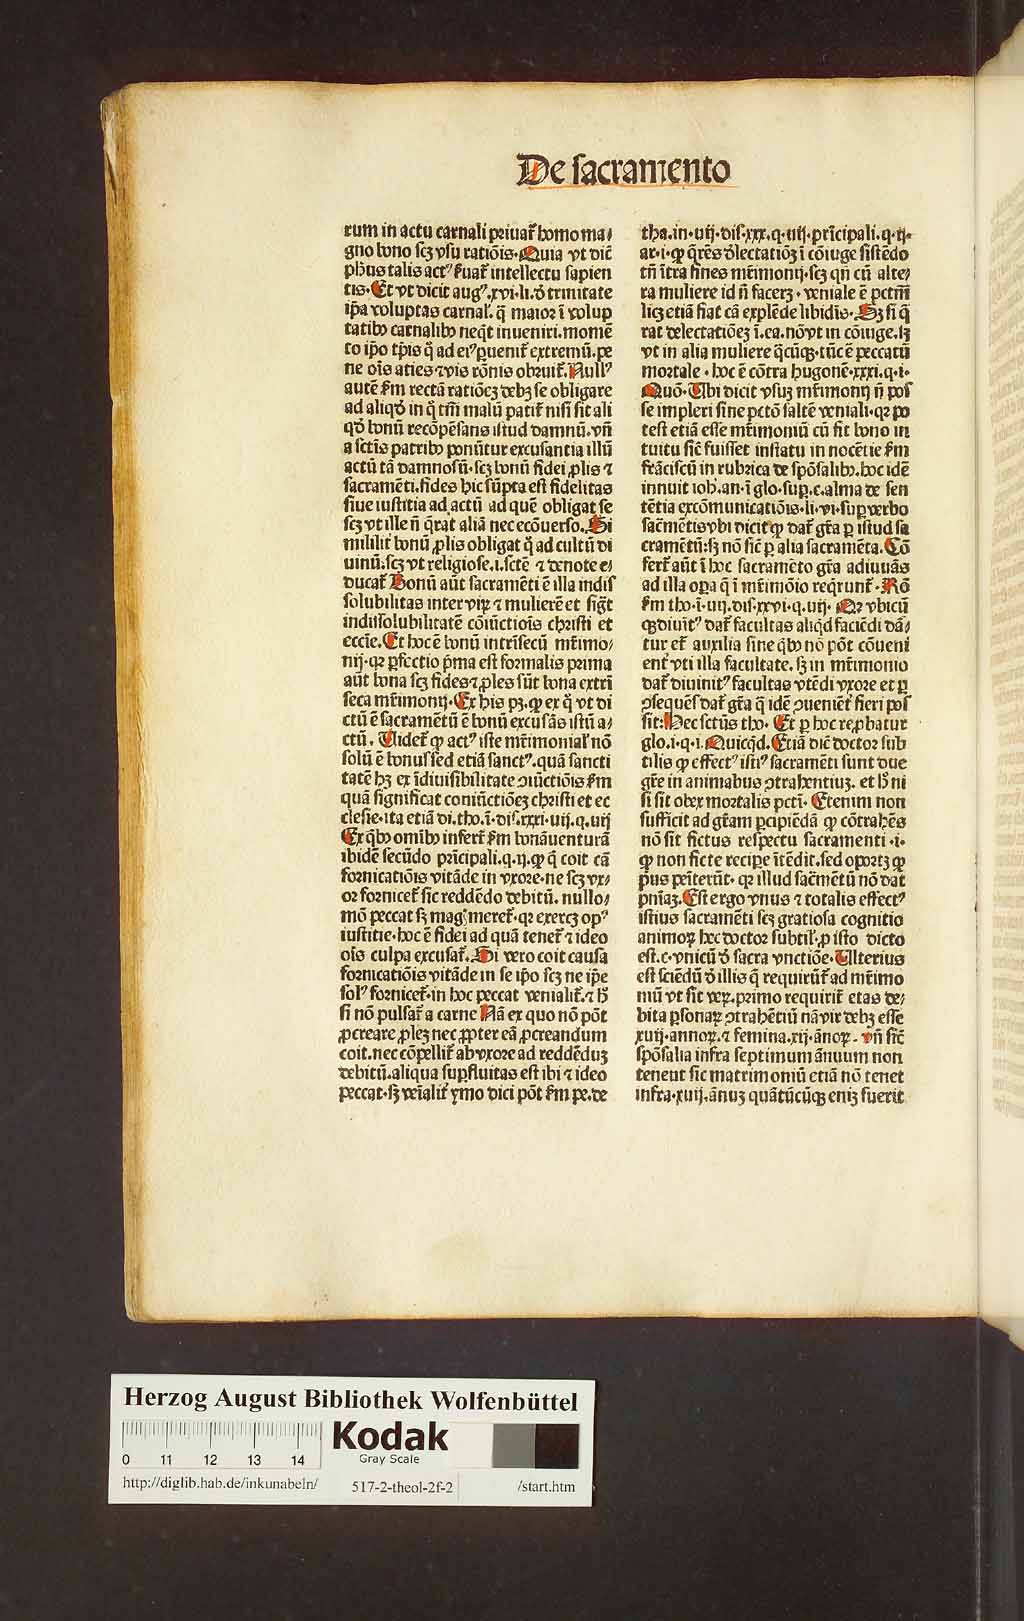 De sacramento
rum in actu carnali priuat̃ homo ma⸗
gno bono scꝫ vsu ratiōis. Quia vt dic̄
ph̄us talis actꝰ ẜuat̃ intellectu sapien
tis. Et vt dicit augꝰ. xvi. li. ď trinitate
ip̄a voluptas carnal'. q̄ maior ī volup
tatibꝰ carnalibꝰ neq̇t inueniri. momē
to ip̄o tp̄is q̊ ad eiꝰ ꝑuenit̃ extremū. pe
ne oīs aties ⁊ vis rōnis obruit̃. Nullꝰ
autē ẜm rectā ratiōeꝫ debꝫ se obligare
ad aliqď in q̊ tm̄ malū patit̃ nisi sit ali
qď bonū recōpēsans istud damnū. vn̄
a sctīs patribꝰ ponūtur excusantia illū
actū tā damnosū. scꝫ bonū fidei ꝓlis ⁊
sacramēti. fides hic sūpta est fidelitas
siue iustitia ad actū ad quē obligat se
scꝫ vt ille n̄ q̄rat aliā nec ecōuerso. Si
milit̃ bonū ꝓlis obligat q̊ ad cultū di
uinū. scꝫ vt religiose. i. sctē ⁊ deuote e⸗
ducat̃ Bonū aūt sacramēti ē illa indis
solubilitas inter viꝝ ⁊ mulierē et sigt̄
indissolubilitatē cōiūctiōis christi et
ecc̄ie. Et hoc ē bonū intrīsecū mr̄imo⸗
nij. qꝛ ꝑfectio p̄ma est formalis prima
aūt bona scꝫ fides ⁊ ꝓles sūt bona extri
seca mr̄imonij. Ex his pꝫ. ꝙ ex q̊ vt di
ctū ē sacramētū ē bonū excusās istū a⸗
ctū. Videt̃ ꝙ actꝰ iste mr̄imonial' nō
solū ē bonus sed etiā sanctꝰ. quā sancti
tatē hꝫ ex īdiuisibilitate ꝯiūctiōis ẜm
quā significat coniūctiōeꝫ christi et ec
clesie. ita etiā di. tho. ī. dis. xxxi. uij. q. uij
Ex q̇bꝰ omībꝰ infert̃ ẜm bonāuenturā
ibidē secūdo prīcipali. q. ij. ꝙ q̄ coit cā
fornicatiōis vitāde in vxore. ne scꝫ vx⸗
or fornicet̃ sic reddēdo debitū. nullo⸗
mō peccat sꝫ magꝭ meret̃. qꝛ exercꝫ opꝰ
iustitie. hoc ē fidei ad quā tenet̃ ⁊ ideo
oīs culpa excusat̃. Si vero coit causa
fornicatiōis vitāde in se ip̄o scꝫ ne ip̄e
solꝰ fornicet̃. in hoc peccat venialit̃. ⁊ hͦ
si nō pulsat̃ a carne Nā ex quo nō pōt
ꝓcreare ꝓleꝫ nec ꝓpter eā ꝓcreandum
coit. nec cōpellit̃ ab vxore ad reddēduꝫ
debitū. aliqua suꝑfluitas est ibi ⁊ ideo
peccat. sꝫ veīalit̃ ymo dici pōt ẜm pe. de
tha. in. uij. dis. xxx. q. uij. prīcipali. q. ij.
ar. i. ꝙ q̄rēs ďlectatiōꝫ ī cōiuge sistēdo
tn̄ ītra fines mr̄imonij. scꝫ qn̄ cū alte⸗
ra muliere id n̄ facerꝫ. veniale ē pctm̄
licꝫ etiā fiat cā explēde libidīs. Sꝫ si q̄
rat delectatiōeꝫ ī. ca. nō vt in cōiuge. sꝫ
vt in alia muliere q̄cūqꝫ. tūc ē peccatū
mortale. hoc ē cōtra hugonē. xxxi. q. i.
Quō. Ubi dicit vsuꝫ mr̄imonij n̄ pos
se impleri sine pctō saltē veniali. qꝛ po
test etiā esse mr̄imoniū cū fit bono in
tuitu sic̄ fuisset instatu in nocētie ẜm
frāciscū in rubrica de spōsalibꝰ. hoc idē
innuit ioh. an. ī glo. suꝑ. c. alma de sen
tētia excōmunicatiōis. li. vi. suꝑ verbo
sac̄mētis vbi dicit ꝙ dat̃ gr̄a ꝑ istud sa
cramētū: sꝫ nō sic̄ ꝑ alia sacramēta. Cō
fert̃ aūt ī hoc sacramēto gr̄a adiuuās
ad illa oꝑa q̄ ī mr̄imōio req̇runt̃. Rō
ẜm tho. ī. uij. dis. xxvi. q. uij. Qꝛ vbicū
qꝫ diuītꝰ dat̃ facultas aliq̇d faciēdi dā⸗
tur et̃ auxilia sine q̇bꝰ nō pōt cōueni
ent̃ vti illa facultate. sꝫ in mr̄imonio
dat̃ diuinitꝰ facultas vtēdi vxore et ꝑ
ꝯsequēs dat̃ gr̄a q̄ idē ꝯuenient̃ fieri pos
sit: Hec sctūs tho. Et ꝑ hoc rep̄batur
glo. i. q. i. Quicq̇d. Etiā dic̄ doctor sub
tilis ꝙ effectꝰ istiꝰ sacramēti sunt due
gr̄e in animabus ꝯtrahentiuꝫ. et hͦ ni
si sit obex mortalis pctī. Etenim non
sufficit ad gr̄am ꝑcipiēdā ꝙ cōtrahēs
nō sit fictus respectu sacramenti .i.
ꝙ non ficte recipe ītēdit. sed oportꝫ ꝙ
p̄us penīterūt. qꝛ illud sac̄mētū nō dat
pn̄iaꝫ. Est ergo vnus ⁊ totalis effectꝰ
istius sacramēti scꝫ gratiosa cognitio
animoꝝ hec doctor subtil'. ꝓ isto dicto
est. c. vnicū ď sacra vnctiōe. Ulterius
est sciēdū ď illis q̄ requirūt̃ ad mr̄imo
niū vt sit veꝝ. primo requirit̃ etas de⸗
bita ꝑsonaꝝ ꝯtrahētiū nā vir debꝫ esse
xuij. annoꝝ. ⁊ femina. xij. ānoꝝ. vn̄ sic̄
spōsalia infra septimum ānuum non
teneut sic matrimoniū etiā nō tenet
infra. xuij. ānuꝫ quātūcūqꝫ eniꝫ fuerit
Herzog August Bibliothek Wolfenbüttel
0 11 12 13 14
Kodak
Gray Scale
http://diglib.hab.de/inkunabeln/ 517-2-theol-2f-2 /start.htm